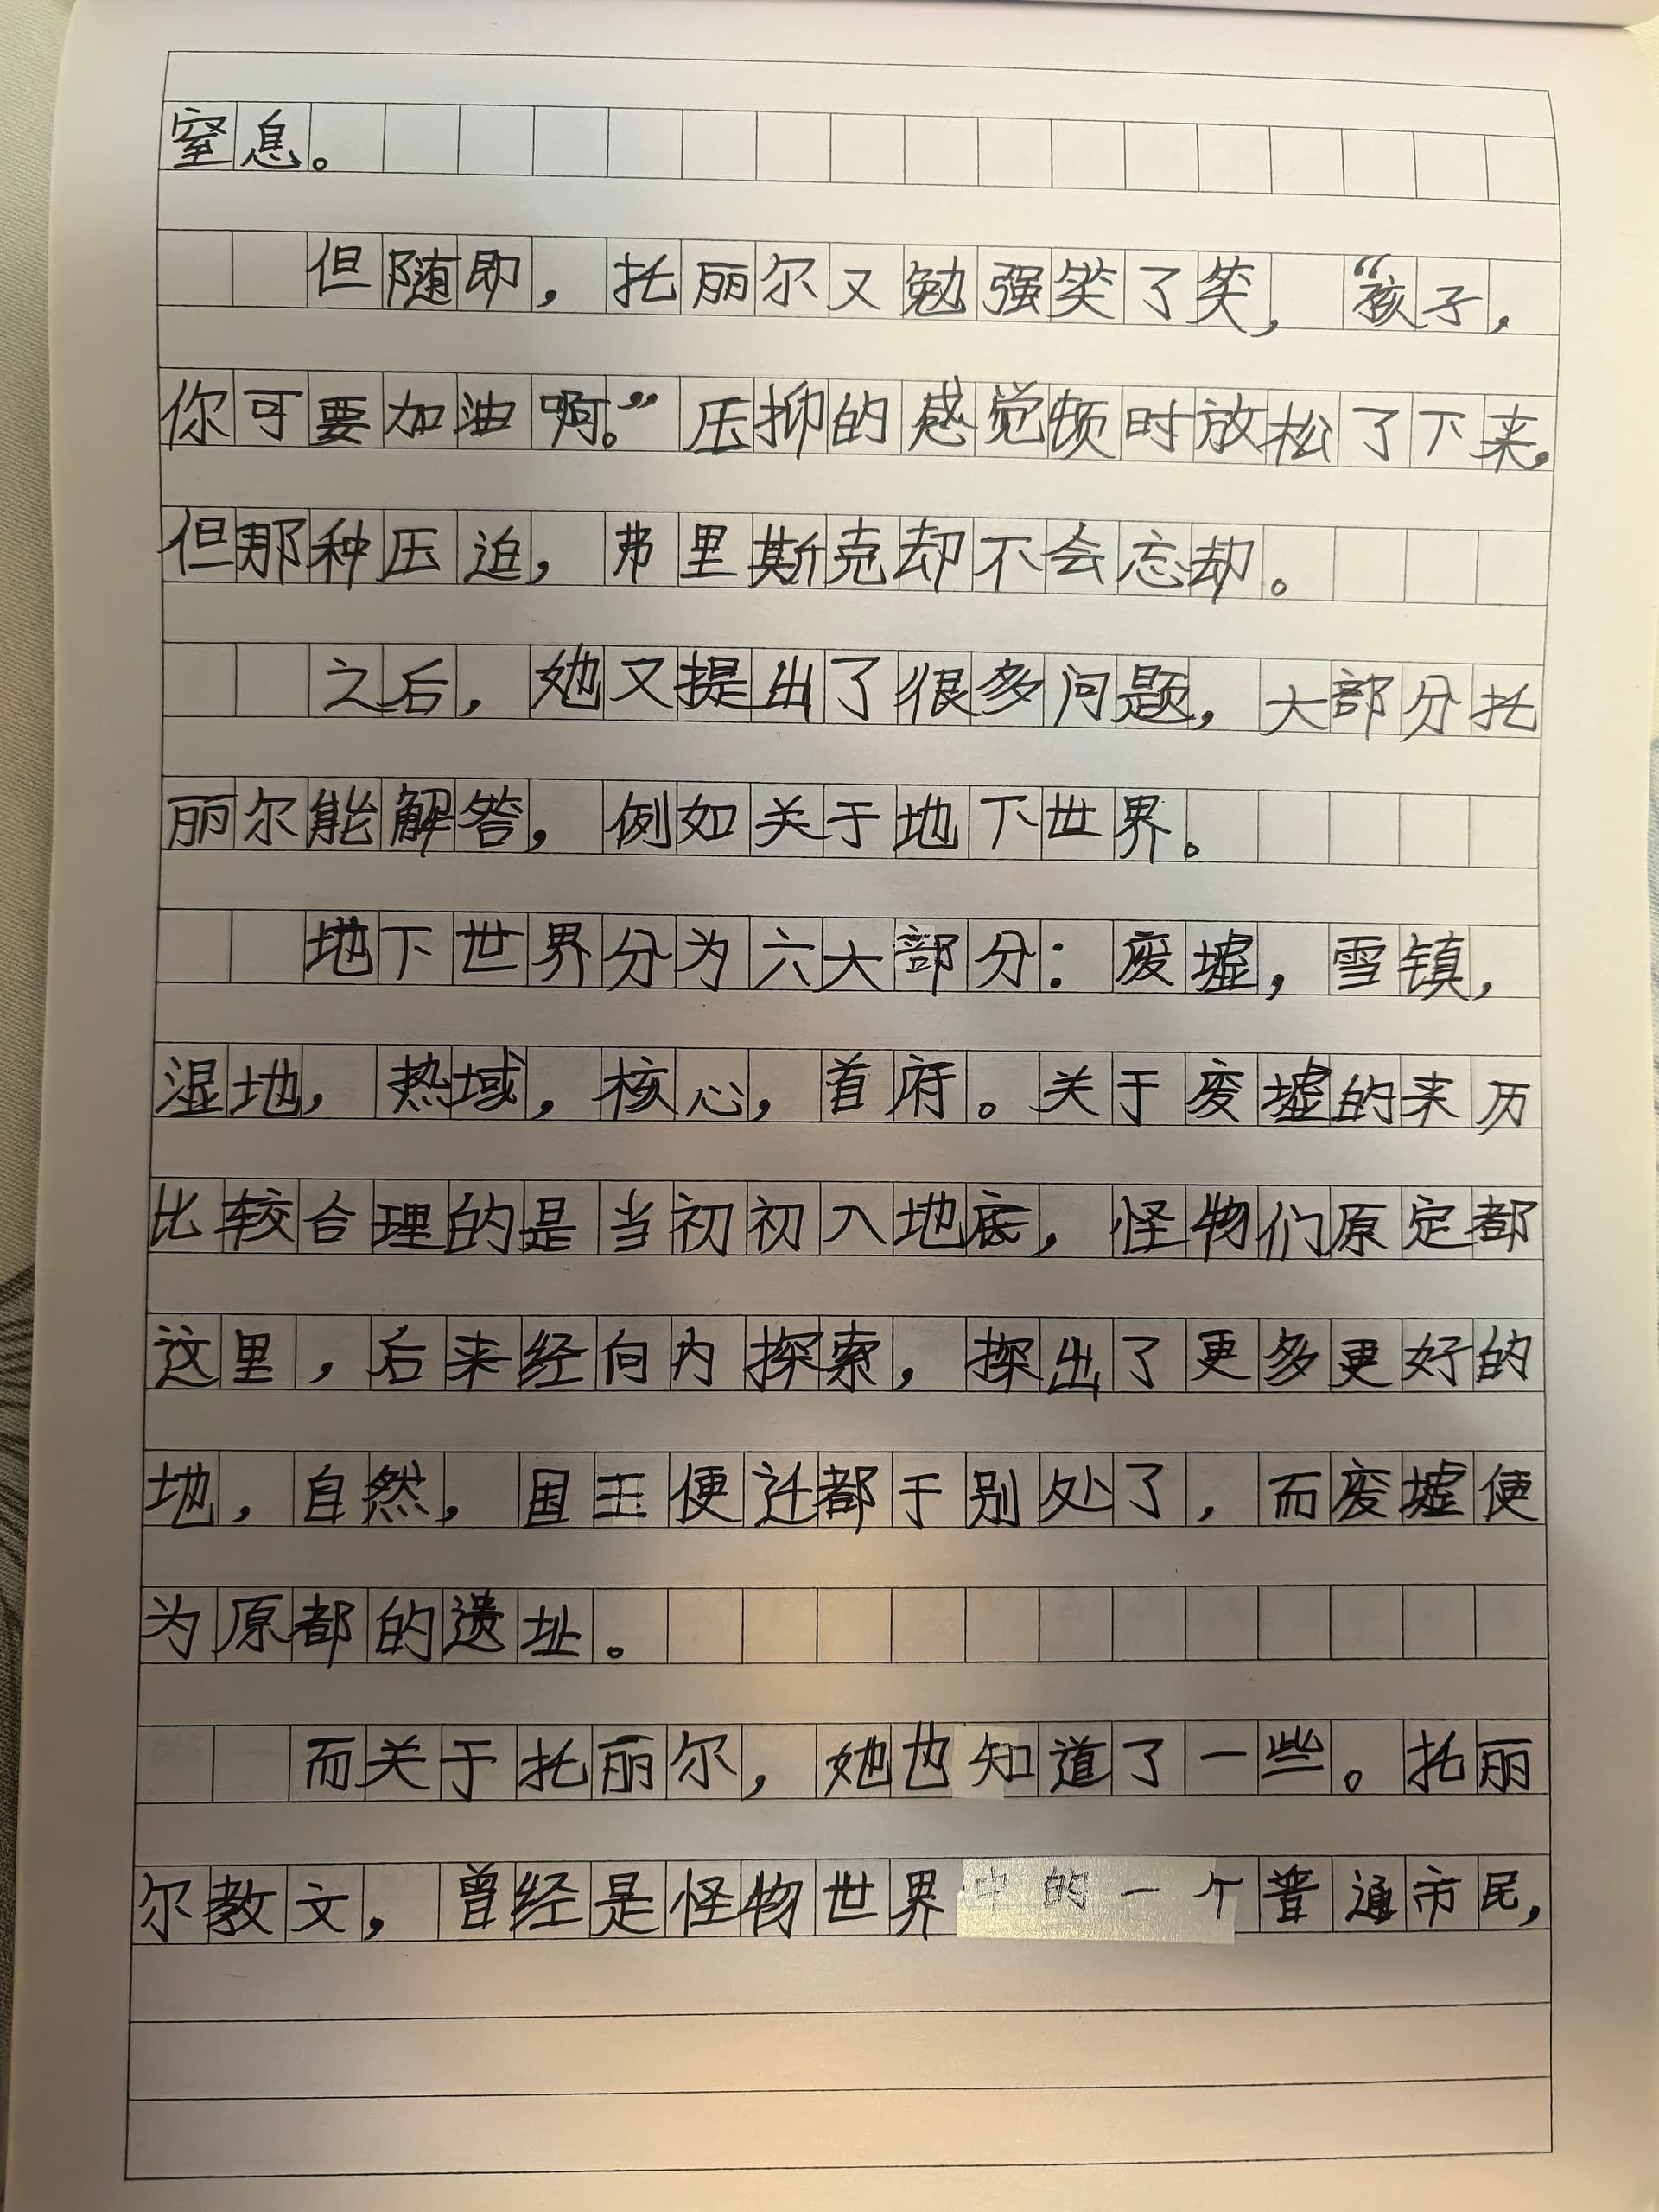 窒息。
但随即，托丽尔又勉强笑了笑，“孩子，
你可要加油啊。”压抑的感觉顿时放松了下来。
但那种压迫，弗里斯克却不会忘却。
之后，她又提出了很多问题，大部分托
丽尔能解答，例如关于地下世界。
地下世界分为六大部分：废墟，雪镇，
湿地，热域，核心，首府。关于废墟的来历
比较合理的是当初初入地底，怪物们原定都
这里，后来经向内探索，探出了更多更好的
地，自然，国王便迁都于别处了，而废墟便
为原都的遗址。
而关于托丽尔，她也知道了一些。托丽
尔教文，曾经是怪物世界中的一个普通市民，